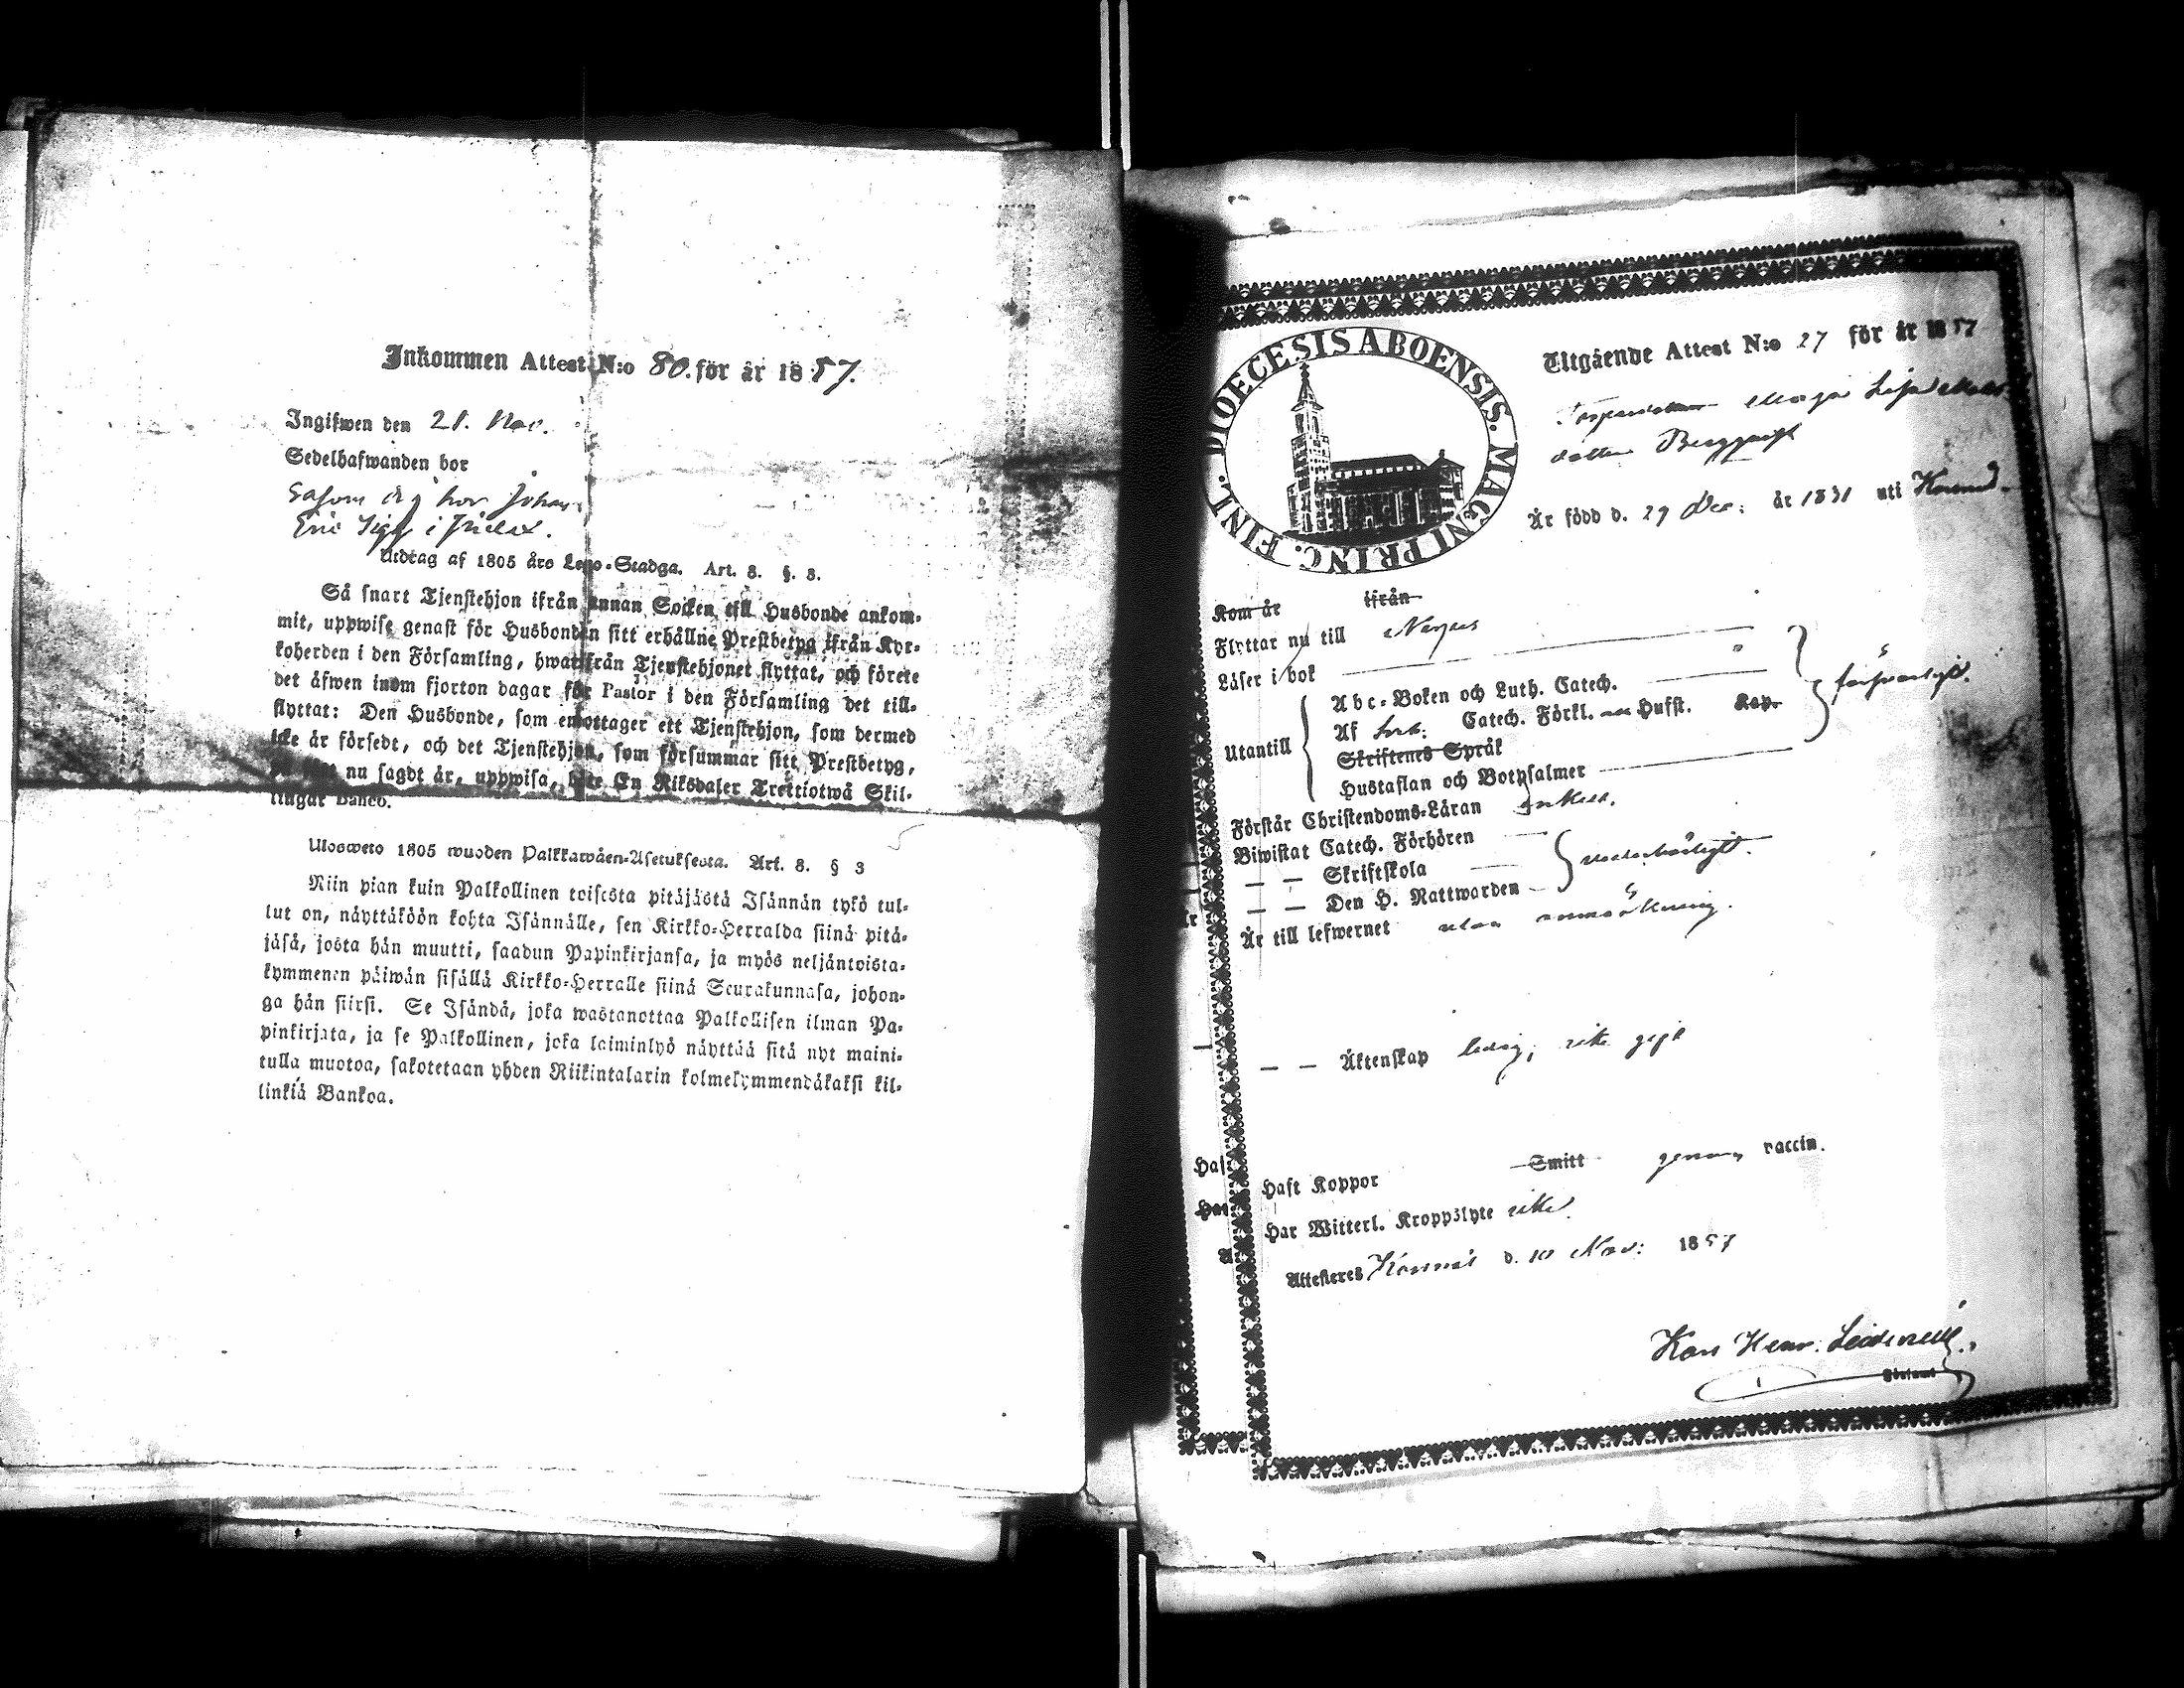 Inkommen Attest N:o 80. för år 1857.
Ingifwen den 21. Nov.
Sedelhafwanden bor
hos Johan
Eric i
Utdrag af 1805 års Lego-Stadga. Art. 8. §. 3.
Så snart Tjenstehjon ifrån annan Socken till Husbonde ankom-
mit, uppwise genast för Husbonden sitt erhållne Prestbetyg ifrån Kyr-
koherden i den Församling, hwarifrån Tjenstehjonet flyttat, och förete
det äfwen inom fjorton dagar för Pastor i den Församling det till-
flyttat: Den Husbonde, som emottager ett Tjenstehjon, som dermed
icke är försedt, och det Tjenstehjon, som försummar sitt Prestbetyg,
nu sagdt är, uppwisa, böte En Riksdaler Trettiotwå Skil-
lingar Banco.
Ulosweto 1805 wuoden Palkkawäen-Asetuksesta. Art. 8. § 3
Niin pian kuin Palkollinen toisesta pitäjästä Isännän tykö tul-
lut on, näyttäköön kohta Isännälle, sen Kirkko-Herralda siinä pitä-
jäsä, josta hän muutti, saadun Papinkirjansa, ja myös neljäntoista-
kymmenen päiwän sisällä Kirkko-Herralle siinä Seurakunnasa, johon-
ga hän siirsi. Se Isändä, joka wastanottaa Palkollisen ilman Pa-
pinkirjata, ja se Palkollinen, joka laiminlyö näyttää sitä nyt maini-
tulla muotoa, sakotetaan yhden Riikintalarin kolmekymmendäkaksi kil-
linkiä Bankoa.
DIOECESIS ABOENSIS. MAGNI PRINC. FINL.
Utgående Attest N:o 27 för år 1857
Maja Lisa
dotter Bergqvist
Är född d. 29 Dec: år 1831 uti
Kom år ifrån
Flyttar nu till
Läser i bok
Utantill
Abc-Boken och Luth. Catech.
försvarligt.
Af Catech. Förkl. Hufst. Kap.
Skriftenes Språk
Hustaflan och Botpsalmer
Förstår Christendoms-Läran enkelt.
Biwistat Catech. Förhören
— — Skriftskola
— — Den H. Nattwarden
Är till lefwernet utan anmärkning.
— — Äktenskap ledig, icke gift
Haft Koppor Smitt genom vaccin.
Har Witterl. Kroppslyte icke.
Attesteras d. 10 Nov: 1857